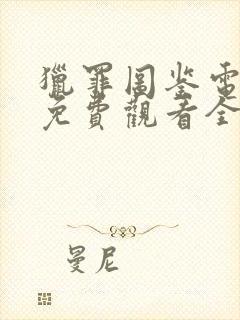 獵罪圖鉴電
免費觀看全
曼尼